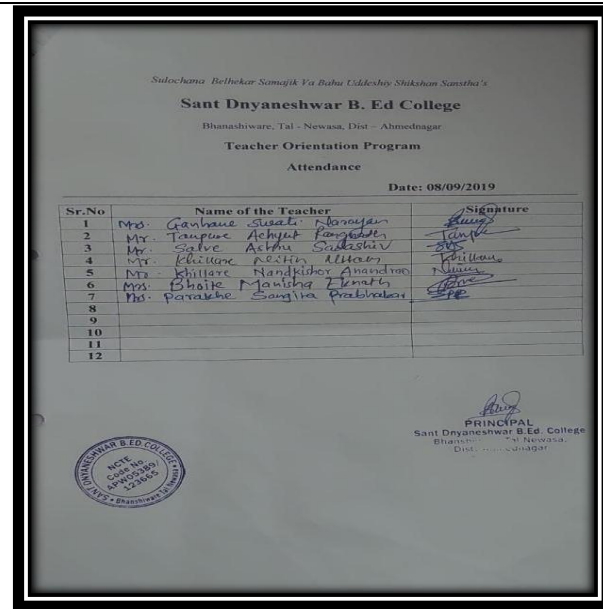 Sulochana Belhekar Samajik Va Bahu Uddeshiy Shikshan Sanstha's
Sant Dnyaneshwar B. Ed College
Bhanashiware, Tal - Newasa, Dist – Ahmednagar
Teacher Orientation Program
Attendance
Date: 08/09/2019
Sr.No Name of the Teacher Signature
1 Mrs. Ganhane Swati Narayan
2 Mr. Tanpure Achyut Tanpure
3 Mr. Salve Ashru Sadashiv
4 Mr. Khillare Nitin Uttam Khillare
5 Mr. Khillare Nandkishor Anandrao
6 Mrs. Bhoite Manisha Eknath
7 Mrs. Parakhe Sangita Prabhakar
8
9
10
11
12
PRINCIPAL
Sant Dnyaneshwar B.Ed. College
Tal Newasa,
Dist.
SANT DNYANESHWAR B.ED.COLLEGE
NCTE
Code No.
APW05389/
123665
Bhanshiware